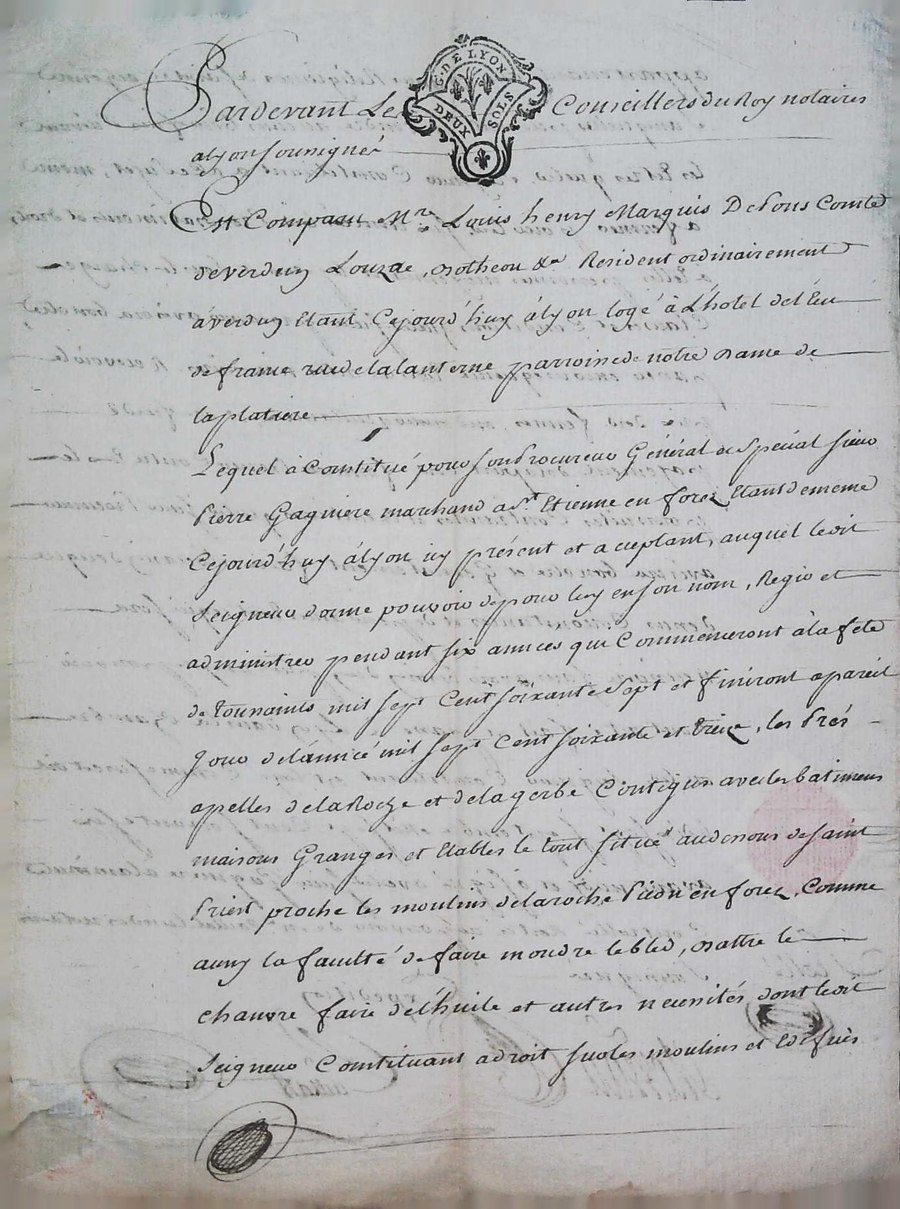 G. DE LYON
DEUX SOLS
Pardevant Les Conseillers du Roy notaires
a lyon sousignés
Est Comparu Mre. Louis henry Marquis De Pons Comte
de verdun Lourde, Botheon &a Resident ordinairement
a verdun Etant Cejourd'huy à lyon logé à L'hotel de l'Ecu
de france rue de la lanterne parroisse de notre Dame de
la platiere
Lequel à Constitué pour son Procureur Général et Spécial sieur
Pierre Gagniere marchand a St. Etienne en forez Etant de meme
Cejourd'huy à lyon icy présent et acceptant, auquel ledit
Seigneur donne pouvoir de pour luy en son nom, Regir et
administrer pendant six années qui Commenceront à la fete
de toussaints mil sept Cent soixante Sept et finiront a pareil
Jour de lannée mil sept Cent soixante et treize, les Prés
apelles de la Roche et de la gerbe Contigus avec les batimens
maisons Granges et Etables le tout situé audessous de saint
Priest proche les moulins de la roche Picon en forez, Comme
aussy la faculté de faire moudre le bled, Battre le
chanvre faire de l'huile et autres necessités dont ledit
Seigneur Constituant a droit sur les moulins et Ediffices